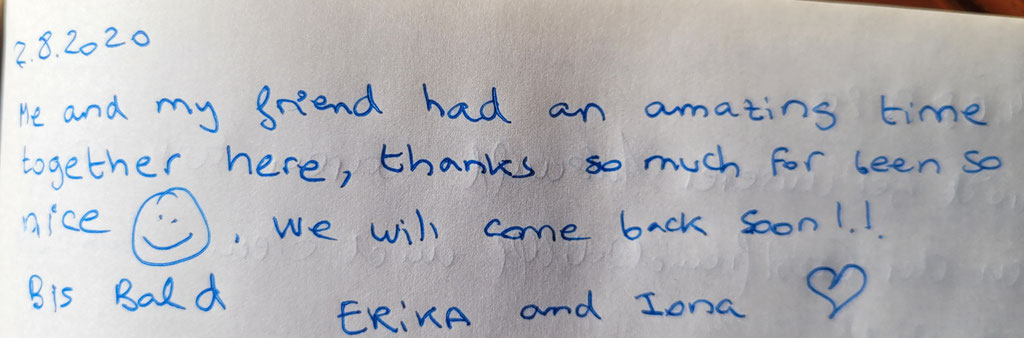 2.8.2020
Me and my friend had an amazing time
together here, thanks so much for been so
nice . We will come back soon!!!
Bis Bald
ERiKA and Iona